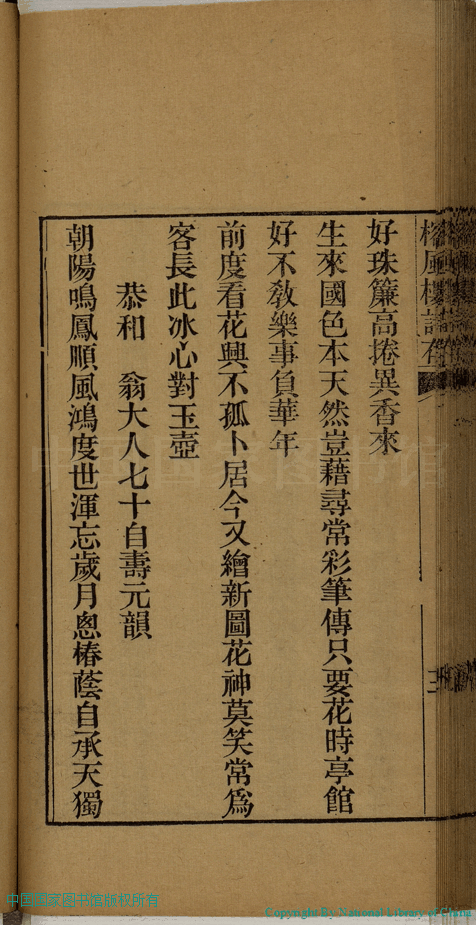 好珠簾高捲異香來
生來國色本天然豈藉尋常彩筆傳只要花時亭館
好不教樂事負華年
前度看花興不孤卜居今又繪新圖花神莫笑常爲
客長此冰心對玉壺
恭和　翁大人七十自壽元韻
朝陽鳴鳳順風鴻度世渾忘歲月悤椿蔭自承天獨
中国国家图书馆版权所有
Copyright By National Library of China